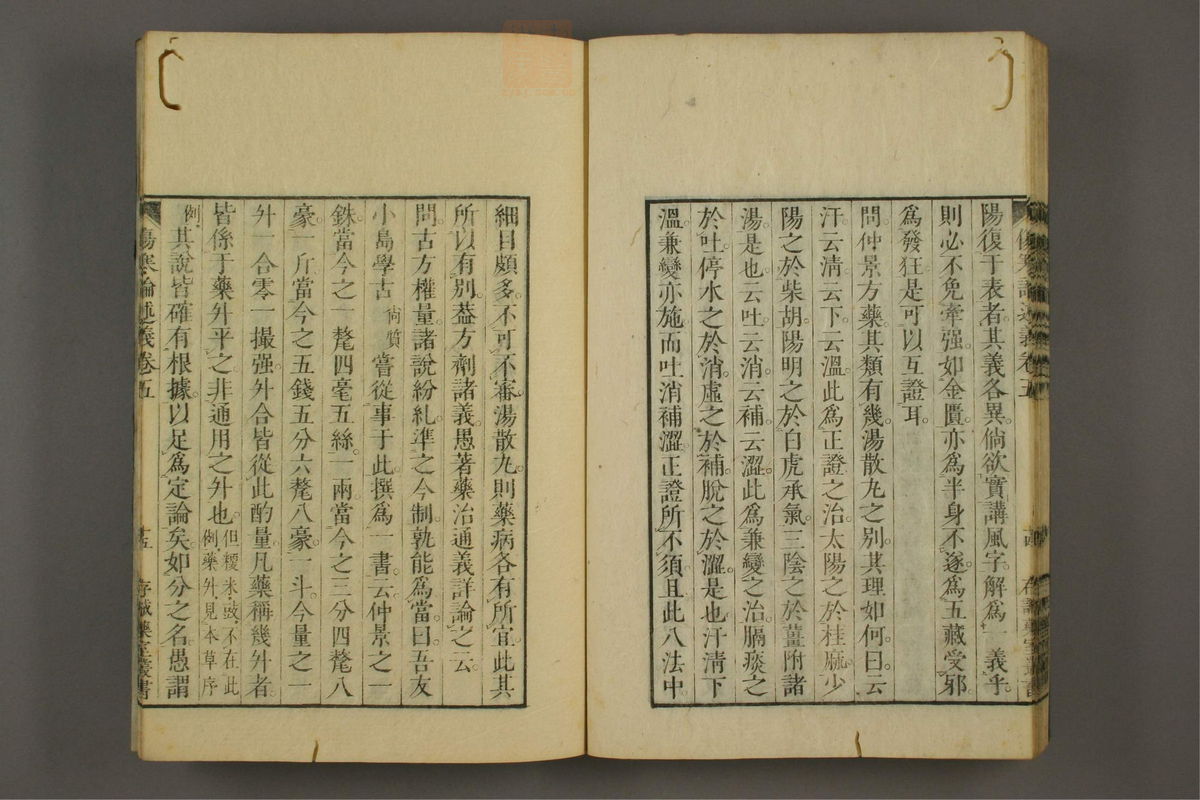 陽復于表者。其義各異。倘欲實講風字。解爲一義乎。
則必不免牽强。如金匱。亦爲半身不遂。爲五藏受邪。
爲發狂。是可以互證耳。
問仲景方藥。其類有幾。湯散丸之別。其理如何。曰。云
汗。云清。云下。云溫。此爲正證之治。太陽之於桂麻。少
陽之於柴胡。陽明之於白虎承氣。三陰之於薑附諸
湯是也。云吐。云消。云補。云澀。此爲兼變之治。膈痰之
於吐。停水之於消。虛之於補。脫之於澀是也。汗清下
溫。兼變亦施。而吐消補澀。正證所不須。且此八法中
細目頗多。不可不審。湯散丸。則藥病各有所宜。此其
所以有別。葢方劑諸義。愚著藥治通義詳論之云
問。古方權量。諸說紛糺。準之今制。孰能爲當。曰。吾友
小島學古 尙質 嘗從事于此。撰爲一書。云仲景之一
銖。當今之一氂四毫五絲。一兩當今之三分四氂八
豪。一斤當今之五錢五分六氂八豪。一斗。今量之一
升一合零一撮强。升合皆從此酌量。凡藥稱幾升者。
皆係于藥升平之。非通用之升也。但糯米。豉。不在此例。藥升見本草序
例。其說皆確有根據。以足爲定論矣。如分之名。愚謂
傷寒論述義卷五
十四
存誠藥室叢書
傷寒論述義卷五
十五
存誠藥室叢書